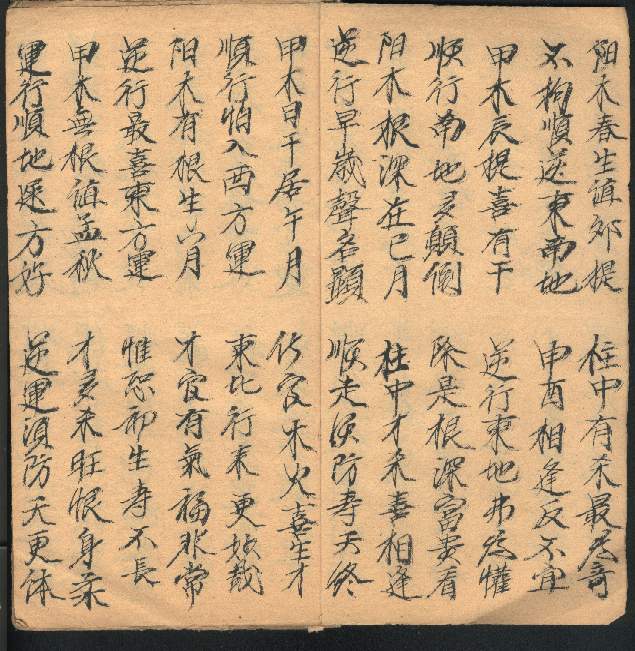 阳木春生值卯提 柱中有杀最为奇
不拘順逆東南地 申酉相逢反不宜
甲木辰提喜有干 逆行東地弗為懽
順行南地多顛倒 除是根深富貴看
阳木根深在巳月 柱中才杀喜相逢
逆行早歲聲名顯 順走須防寿夭終
甲木日干居午月 伤官木火喜生才
順行怕入西方運 東北行来更妙哉
阳木有根生六月 才官有氣福非常
逆行最喜東方運 惟恐卯生寿不長
甲木無根值孟秋 才多杀旺恨身柔
運行順地方好 逆運須防夭更体